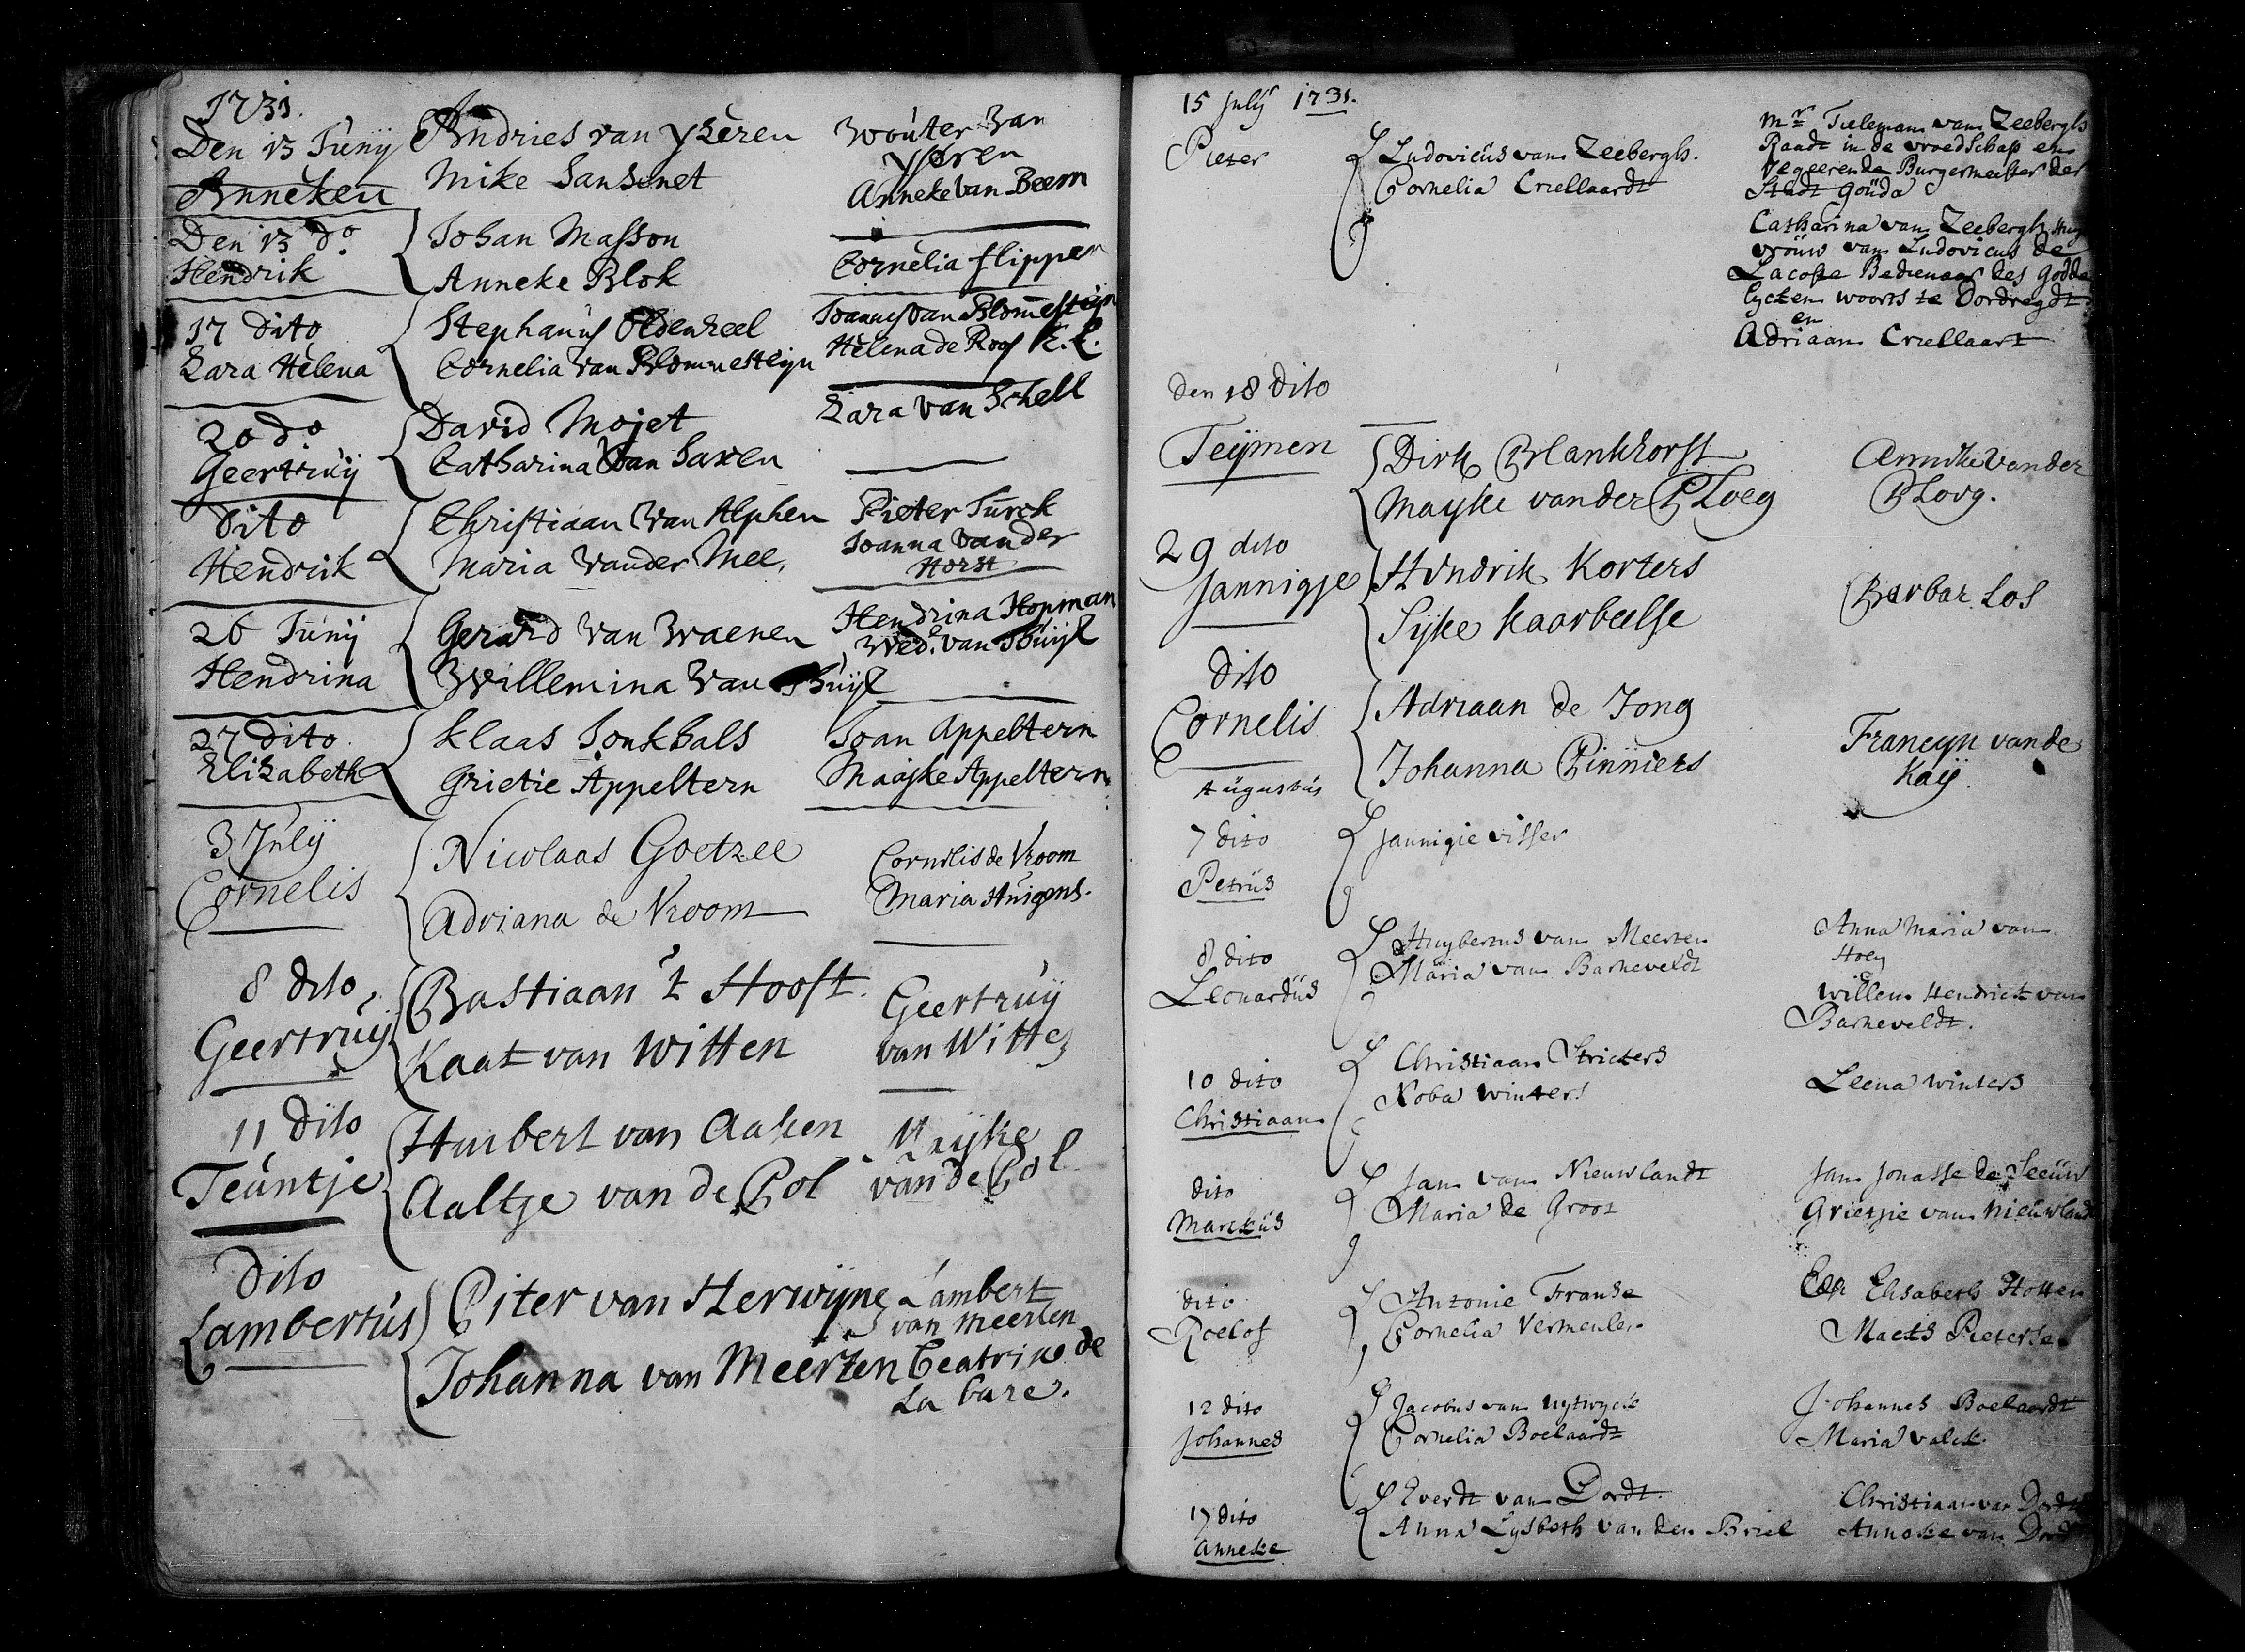 1731.
Den 13 Junij
Anneken
Andries van Yseren
Mike Sansenet
Wouter van
Yseren
Anneke van Beem
Den 13 do
Hendrik
Johan Masson
Anneke Blok
Cornelia flippen
17 dito
Sara Helena
Stephanus Oldenzeel
Cornelia van Blommesteijn
Joannes van Blom̄esteijn
Helena de Roos
20 do
Geertruij
David Mojet
Catharina van Saxen
Sara van Schell
Dito
Hendrik
Christiaan van Alphen
Maria vander Mee,
Pieter Turck
Joanna vander
Horst
26 Junij
Hendrina
Gerard van Waenen
Willemina van
Hendrina Hopman
Wed. van
27 Dito
Elizabeth
Klaas Jonkhals
Grietie Appeltern
Joan Appeltern
Maajke Appeltern
3 Julij
Cornelis
Nicolaas Goetzee
Adriana de Vroom
Cornelis de Vroom
Maria Huigens.
8 dito,
Geertruij
Bastiaan 't Hooft
Kaat van Witten
Geertruij
van Witte
11 Dito
Teuntje
Huibert van Aaken
Aaltje van de Pol
Marijke
van de Pol
Dito
Lambertus
Piter van Herwijne
Johanna van Meerten
Lambert
van Meerten
Beatrix de
La Care.
15 Julij 1731.
Pieter
Ludovicus van Zeebergh.
Cornelia Criellaardt
Mr Tieleman van Zeebergh
Raadt in de vroedschap en
Regeerende Burgermeester der
Stadt Gouda
Catharina van Zeebergh Huys
vrouw van Ludovicus de
Lacoste Bedienaar des Godde
lycken woorts te Dordregdt
en
Adriaan Criellaart
Den 18 Dito
Teijmen
Dirk Blankhorst
Mayke vander Ploeg
Annike vander
Ploeg.
29 dito
Jannigje
Hendrik Korters
Sijke Kaarbeelse
Barbar Los
Dito
Cornelis
Adriaan de Jong
Johanna Pinniers
Francyn vande
Kaij.
Augustus
7 dito
Petrus
Jannigie visser
8 dito
Leonardus
Huybertus van Meerten
Maria van Barneveldt
Anna Maria van
Hoey
Willem Hendrick van
Barneveldt.
10 dito
Christiaan
Christiaan Strickers
Koba Winters
Leena Winters
dito
Marckus
Jan van Nieuwlandt
Maria de Groot
Jan Jonasse de Leeuw
Grietjie van Nieuwland
dito
Roelof
Antonie Franse
Cornelia Vermeulen
Elisabeth Hotten
Maets Pieterse
12 dito
Johannes
Jacobus van Uytwyck
Cornelia Boelaardt
Johannes Boelaardt
Maria valck.
17 dito
Anneke
Everdt van Dordt.
Anna Lysbeth van den Briel
Christiaan van Dordt
Anneke van Dordt